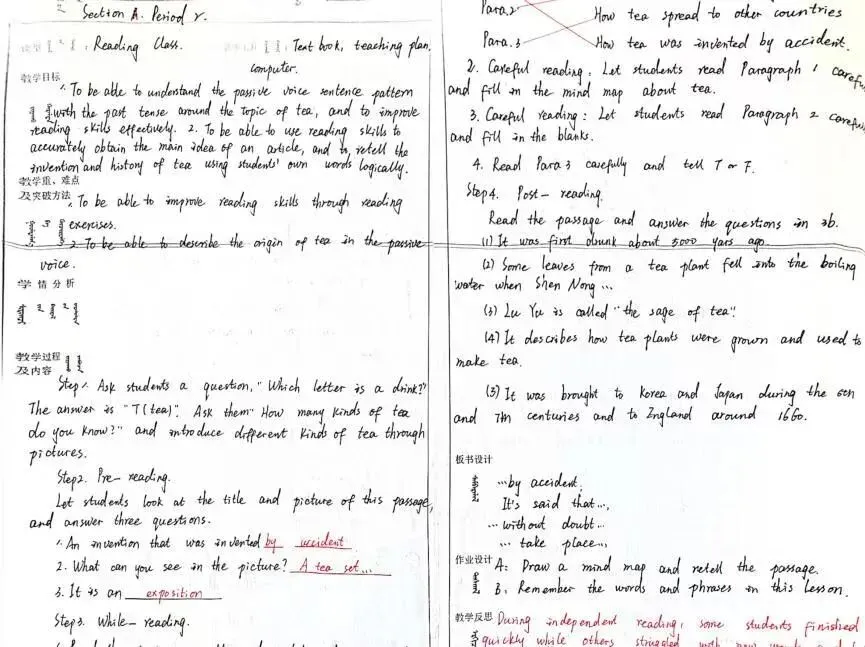 Section A. Period 2.
Reading Class.
Text book, teaching plan,
computer.
教学目标
1. To be able to understand the passive voice sentence pattern
with the past tense around the topic of tea, and to improve
reading skills effectively. 2. To be able to use reading skills to
accurately obtain the main idea of an article, and to retell the
invention and history of tea using students' own words logically.
教学重、难点
及突破方法
1. To be able to improve reading skills through reading
exercises.
2. To be able to describe the origin of tea in the passive
voice.
学情分析
教学过程
及内容
Step 1. Ask students a question, "Which letter is a drink?"
The answer is "T (tea)". Ask them "How many kinds of tea
do you know?" and introduce different kinds of tea through
pictures.
Step2. Pre-reading.
Let students look at the title and picture of this passage,
and answer three questions.
1. An invention that was invented by accident
2. What can you see in the picture? A tea set...
3. It is an exposition
Step3. While-reading.
Para.2
How tea spread to other countries
Para.3
How tea was invented by accident.
2. Careful reading: Let students read Paragraph 1
and fill in the mind map about tea.
3. Careful reading: Let students read Paragraph 2
and fill in the blanks.
4. Read Para 3 carefully and tell T or F.
Step4. Post-reading.
Read the passage and answer the questions in 3b.
(1) It was first drunk about 5000 yars ago.
(2) Some leaves from a tea plant fell into the boiling
water when Shen Nong...
(3) Lu Yu is called "the sage of tea".
(4) It describes how tea plants were grown and used to
make tea.
(5) It was brought to Korea and Japan during the 6th
and 7th centuries and to England around 1660.
板书设计
...by accident.
It's said that...,
... without doubt...
... take place...,
作业设计
A: Draw a mind map and retell the passage.
B: Remember the words and phrases in this lesson.
教学反思
During independent reading, some students finished
quickly while others struggled with